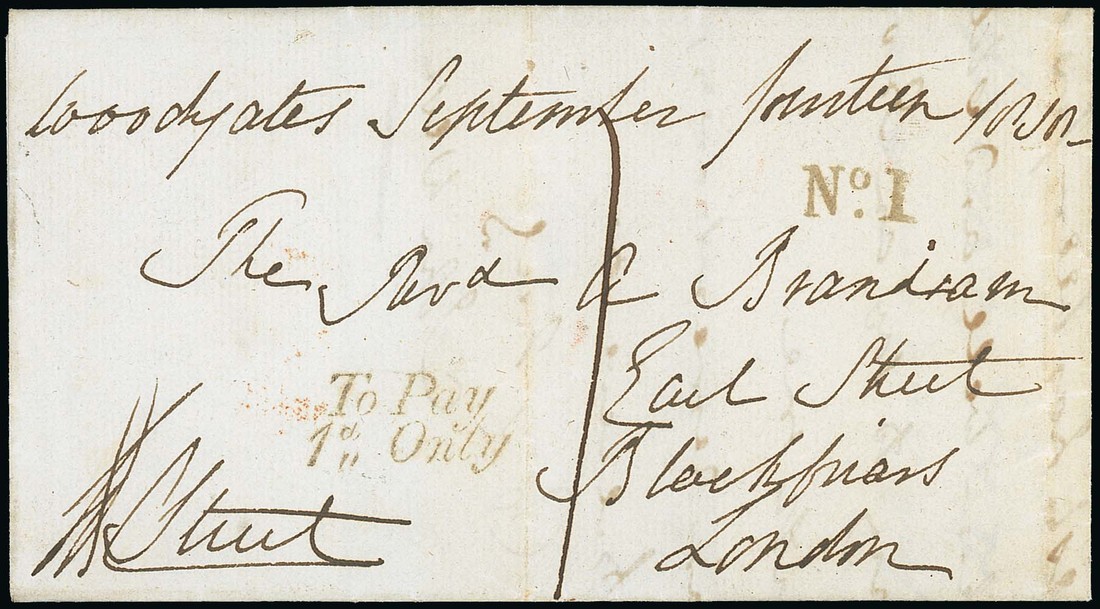 Woodyates September fourteen 1838
No. 1
The Revd A Brandram
Earl Street
To Pay
1d Only
Blackfriars
London
Street